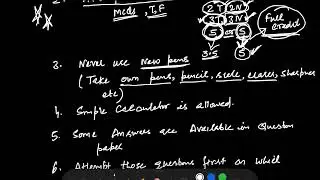 2.
MCQs, T, F
2T 2N
3T 3N
5 or 5
3.5
Full
Credit
3. Never use New pens
( Take own pens, pencil, scale, eraser, sharpner
etc)
4. Simple Calculator is allowed.
5. Some Answers are Available in Question
paper
6. Attempt those questions first on which